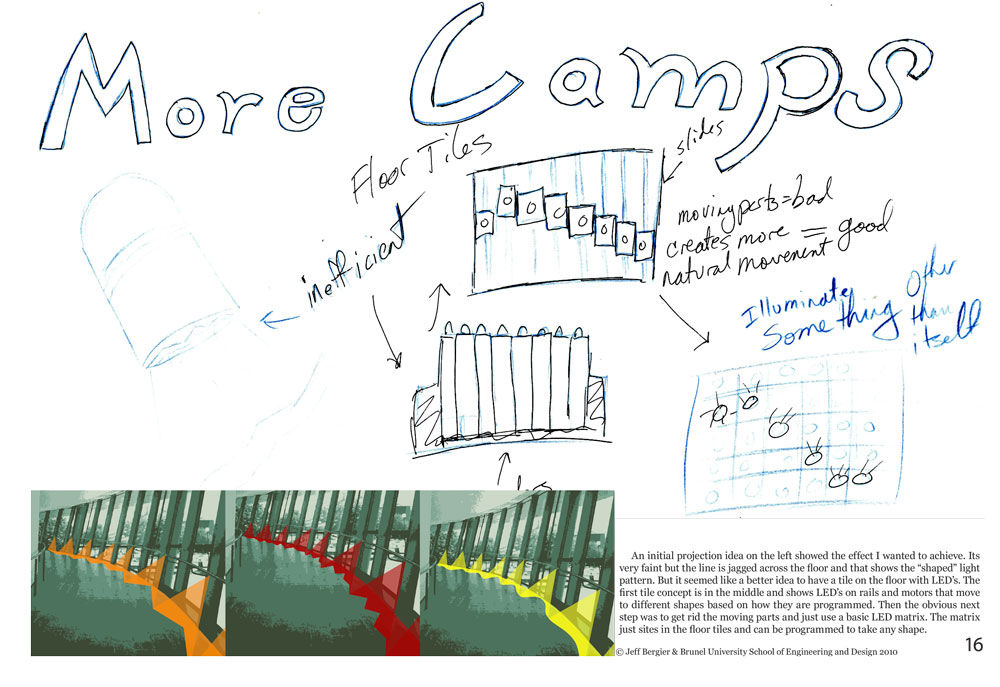 More Camps
Floor Tiles
slides
inefficient
moving parts = bad
creates more = good
natural movement
Illuminate
Something
Other
than
itself
An initial projection idea on the left showed the effect I wanted to achieve. Its
very faint but the line is jagged across the floor and that shows the “shaped” light
pattern. But it seemed like a better idea to have a tile on the floor with LED’s. The
first tile concept is in the middle and shows LED’s on rails and motors that move
to different shapes based on how they are programmed. Then the obvious next
step was to get rid the moving parts and just use a basic LED matrix. The matrix
just sites in the floor tiles and can be programmed to take any shape.
© Jeff Bergier & Brunel University School of Engineering and Design 2010
16